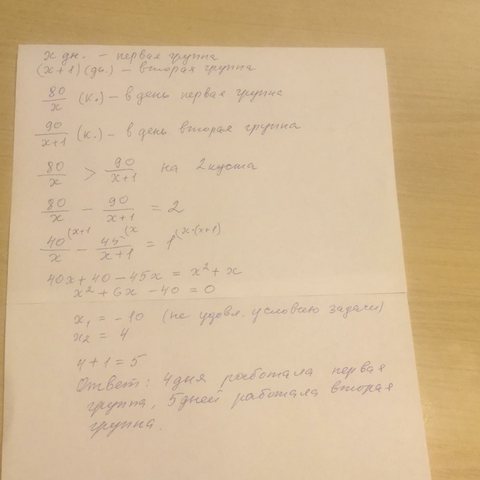 x дн. - первая группа
(x+1) (дн.) - вторая группа
80/x (к.) - в день первая группа
90/(x+1) (к.) - в день вторая группа
80/x > 90/(x+1) на 2 куста
80/x - 90/(x+1) = 2
40/x (x+1 - 45/(x+1) (x = 1 (x·(x+1)
40x + 40 - 45x = x² + x
x² + 6x - 40 = 0
x₁ = -10 (не удовл. условию задачи)
x₂ = 4
4+1 = 5
Ответ: 4 дня работала первая
группа, 5 дней работала вторая
группа.